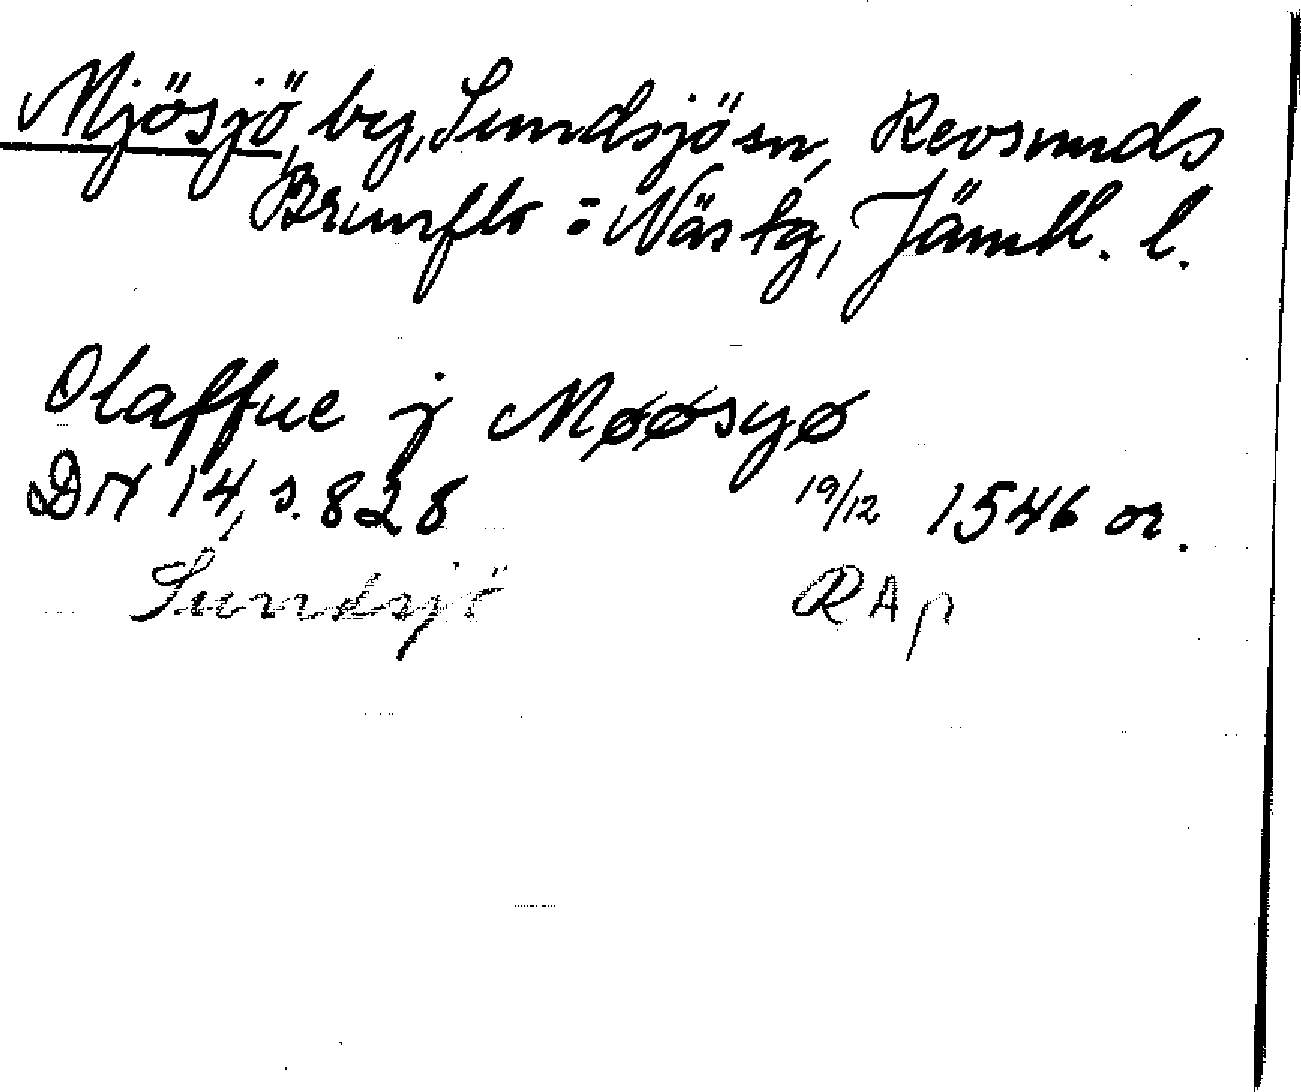 Mjösjö, by, Sundsjö sn, Revsunds
Brunflo = Näs tg, Jämtl. l.
Olaffue j Møøsyø
DN 14, s. 828 19/12 1546 or.
Sundsjö RAp